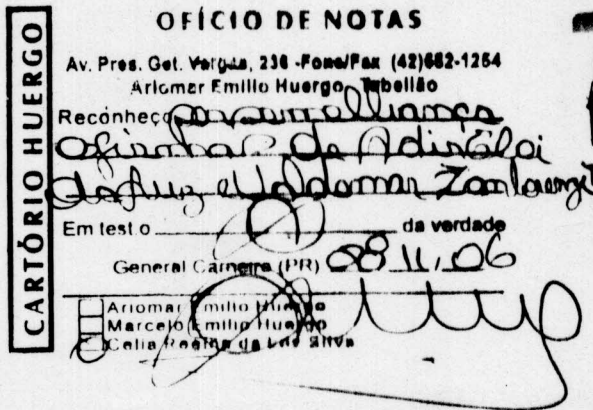 CARTÓRIO HUERGO
OFÍCIO DE NOTAS
Av. Pres. Get. Vargas, 236 -Fone/Fax (42)652-1254
Ariomar Emilio Huergo Tabelião
Reconheço por semelhança
a firma de
da Luz e Valdomar Zanlorenzi
Em test.o da verdade
General Carneiro (PR) 08 11, 06
Ariomar Emilio Huergo
Marcelo Emilio Huergo
Celia Regina da Luz Silva